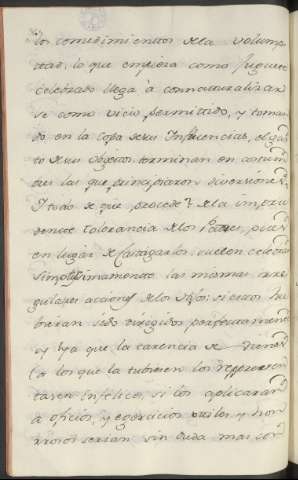 los comedimientos de la volump
tad, lo que empieza como juguete
celebrado llega à connaturalizar
se como vicio permittido, y toman
do en la Copa de sus Influencias, el gus
to de sus objetos, terminan en costum
bres las que principiaron diversiones.
Y todo de que procede? de la impru
dente tolerancia de los Padres, pues
en lugar de Castigarlos suelen celebrar
simplisimamente las mismas irre
gulares acciones de los Hijos: si estos hu
bieran sido dirigidos perfectamente
y ya que la carencia de
la los que la tubiesen los representa
tasen infelices, si los aplicaran
a oficios, y egercicios utiles y hon
rrosos serian sin duda mas